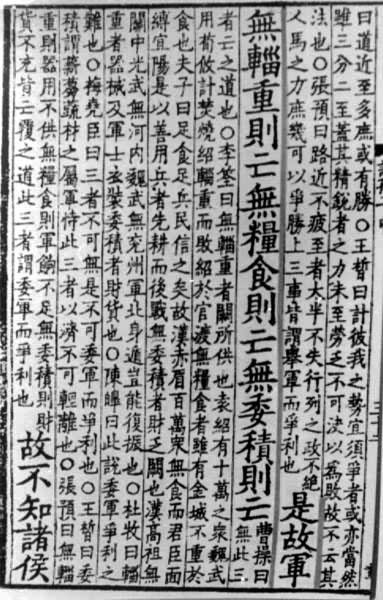 曰道近至多庶或有勝〇王晳曰計彼我之勢宜須爭者或亦當然
雖三分二至蓋其精銳者之力未至勞乏不可決以為敗故不云其
法也〇張預曰路近不疲至者太半不失行列之政不絕
人馬之力庶幾可以爭勝上三事皆謂舉軍而爭利也
是故軍
無輜重則亡無糧食則亡無委積則亡
曹操曰
無此三
者亡之道也〇李筌曰無輜重者闕所供也袁紹有十萬之衆魏武
用荀攸計焚燒紹輜重而敗紹於官渡無糧食者雖有金城不重於
食也夫子曰足食足兵民信之矣故漢赤眉百萬衆無食而君臣面
縛宜陽是以善用兵者先耕而後戰無委積者財乏闕也漢高祖無
關中光武無河內魏武無兗州軍北身遁豈能復振也〇杜牧曰輜
重者器械及軍士衣裝委積者財貨也〇陳皡曰此說委軍爭利之
難也〇梅堯臣曰三者不可無是不可委軍而爭利也〇王晳曰委
積謂薪蒭蔬材之屬軍恃此三者以濟不可輕離也〇張預曰無輜
重則器用不供無糧食則軍餉不足無委積則財
貨不充皆亡覆之道此三者謂委軍而爭利也
故不知諸侯